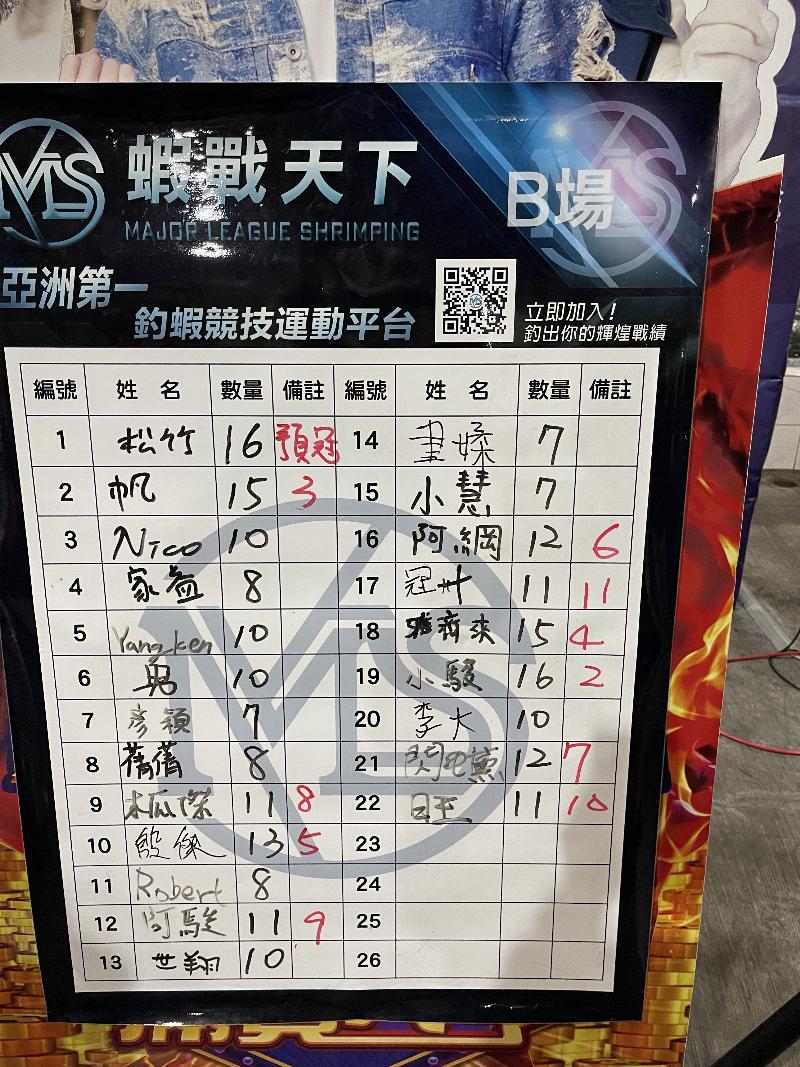 MS
蝦戰天下
B場
MAJOR LEAGUE SHRIMPING
亞洲第一
釣蝦競技運動平台
立即加入！
釣出你的輝煌戰績
編號 姓名 數量 備註 編號 姓名 數量 備註
1 松竹 16 預冠 14 7
2 帆 15 3 15 小慧 7
3 Nico 10 16 阿綱 12 6
4 家益 8 17 冠卅 11 11
5 Yang_ken 10 18 雅齊來 15 4
6 勇 10 19 小駿 16 2
7 彥穎 7 20 李大 10
8 蒨蒨 8 21 閃電黨 12 7
9 木瓜傑 11 8 22 日王 11 10
10 13 5 23
11 Robert 8 24
12 阿駿 11 9 25
13 世翔 10 26